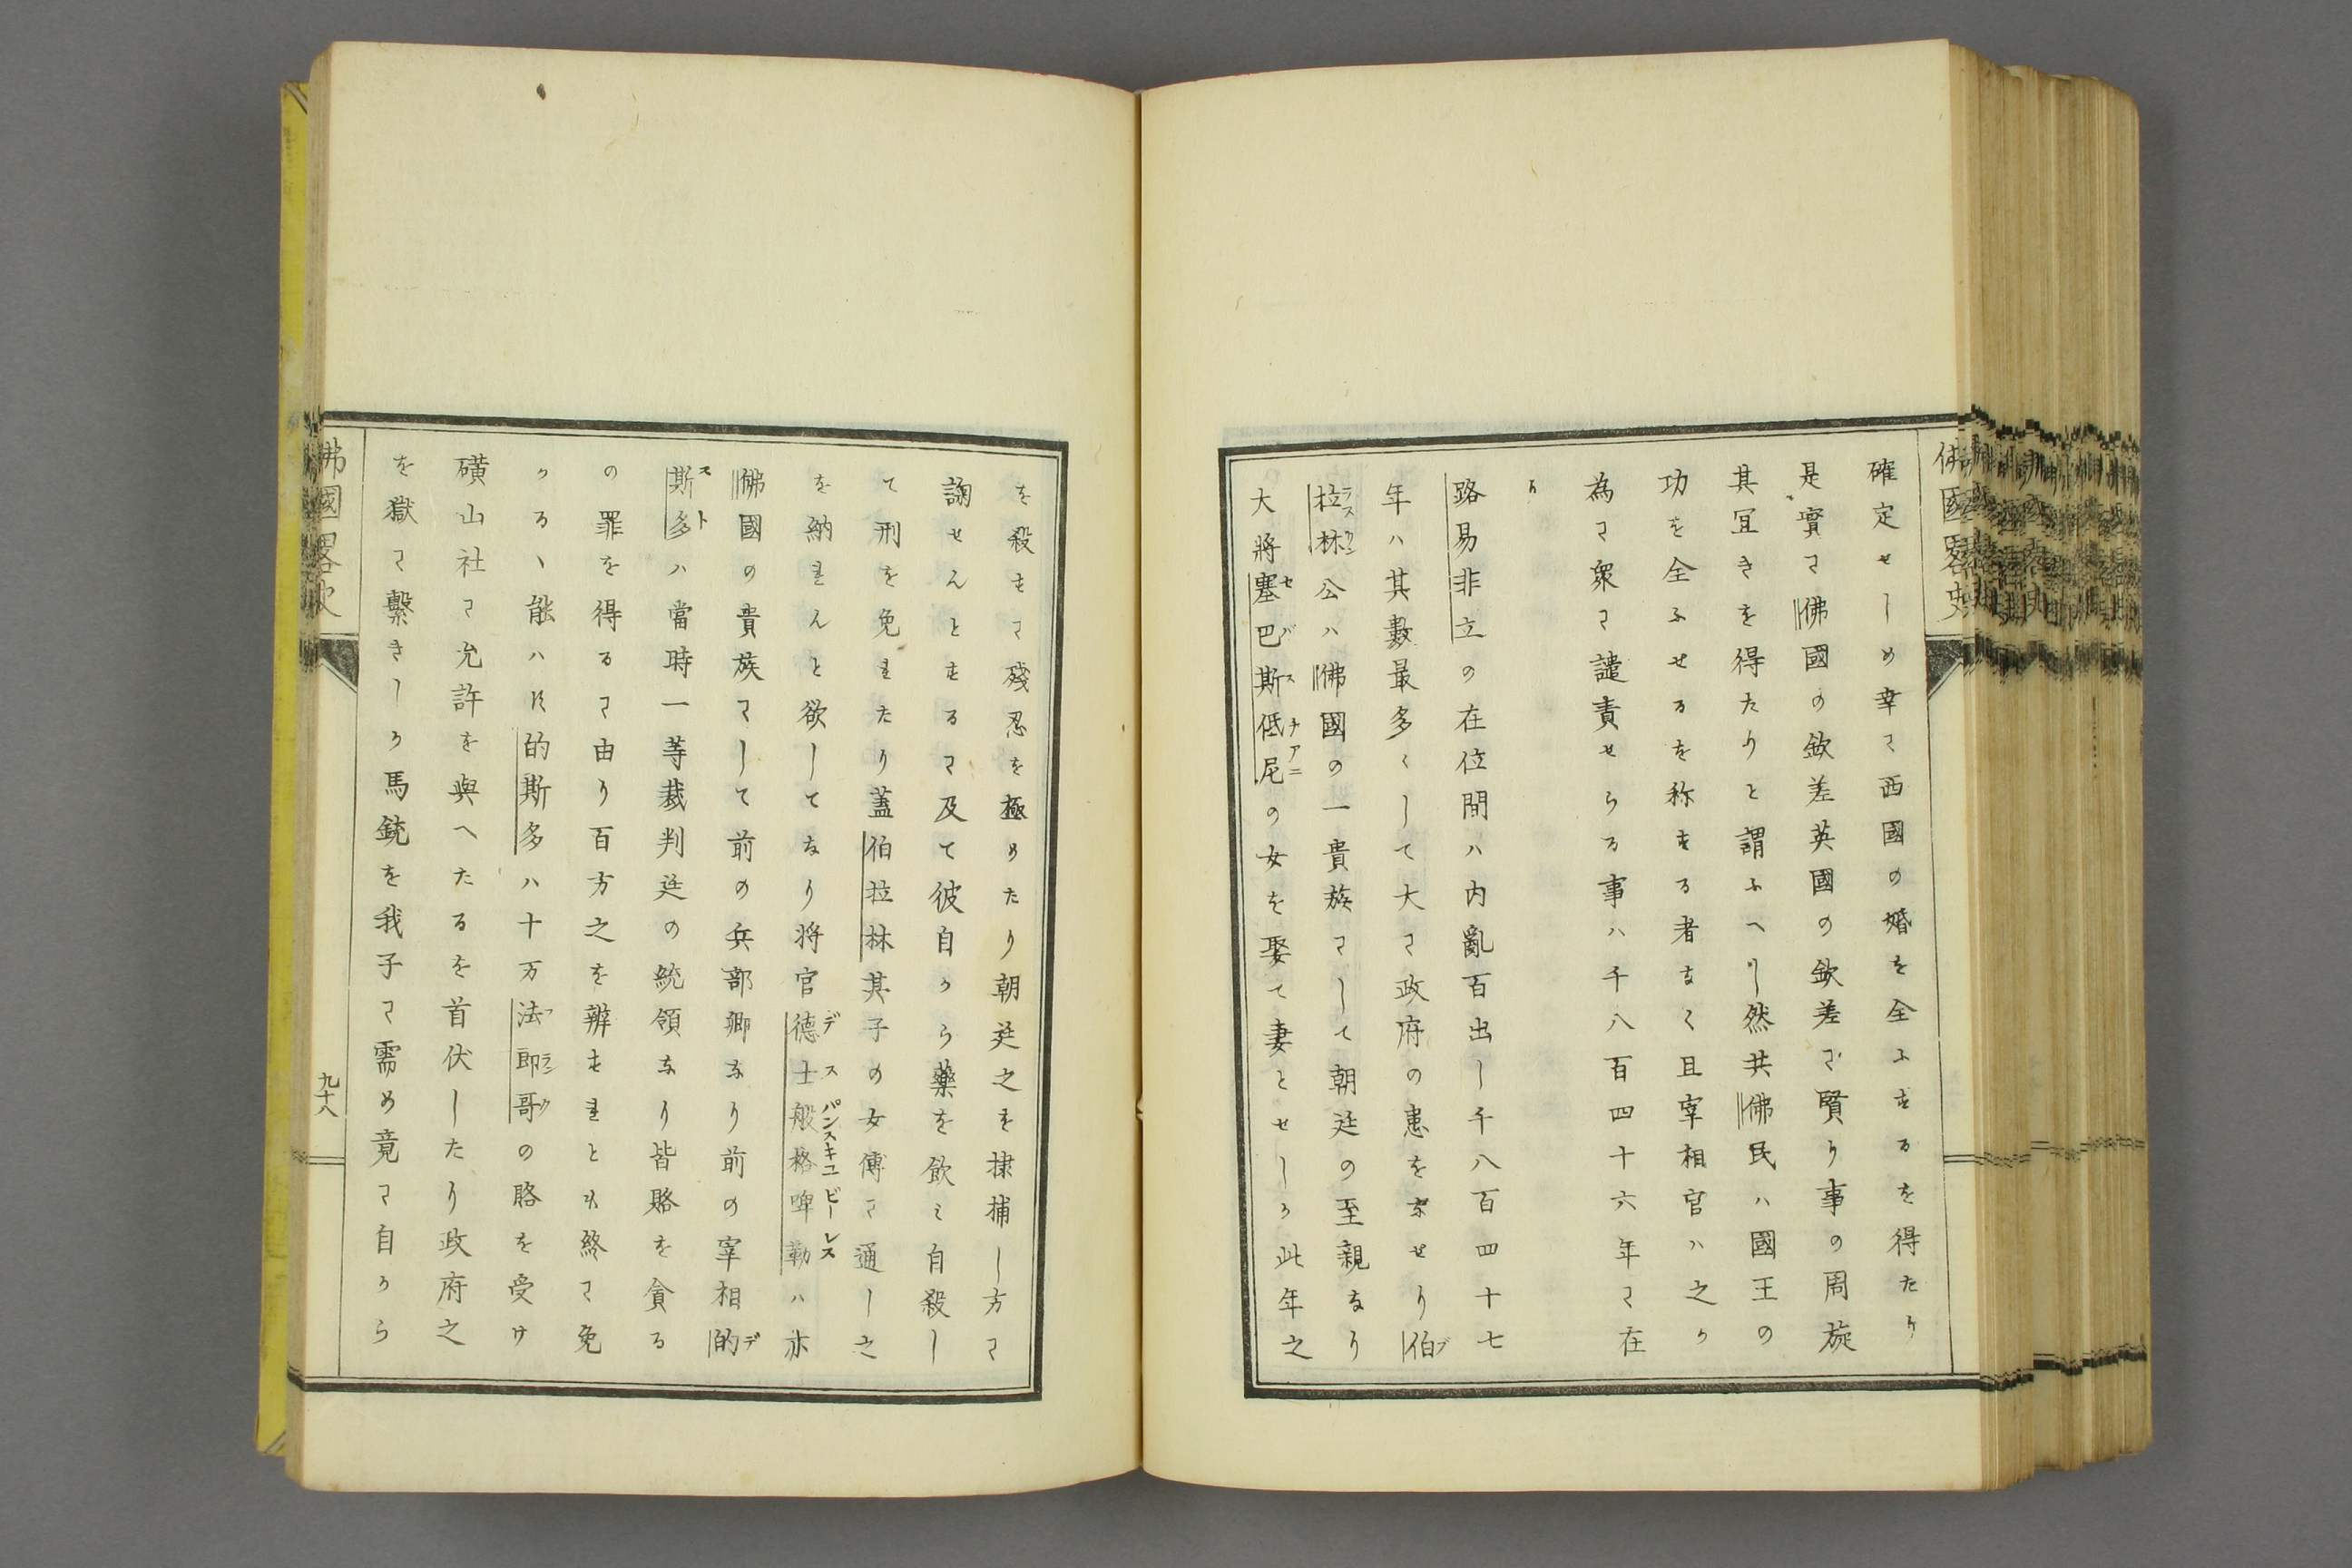 佛國畧史
確定せしめ幸に西國の婚を全ふするを得たり
是實に佛國の欽差英國の欽差に賢り事の周旋
其宜きを得たりと謂ふへし然共佛民ハ國王の
功を全ふせるを称する者なく且宰相官ハ之か
為に衆に譴責せらる事ハ千八百四十六年に在
り
路易非立の在位間ハ内亂百出し千八百四十七
年ハ其數最多くして大に政府の患を為せり伯
拉林公ハ佛國の一貴族にして朝廷の至親なり
大將塞巴斯低尼の女を娶て妻とせしか此年之
を殺すに殘忍を極めたり朝廷之を捕し方に
鞫せんとするに及て彼自から藥を飲み自殺し
て刑を免れたり蓋伯拉林其子の女傅に通し之
を納れんと欲してなり将官德士般格啤勒ハ亦
佛國の貴族にして前の兵部卿なり前の宰相的
斯多ハ當時一等裁判廷の統領なり皆賂を貪る
の罪を得るに由り百方之を辨すれとも終に免
かるゝ能ハす的斯多ハ十万法郎哥の賂を受け
礦山社に允許を與へたるを首伏したり政府之
を獄に繫きしか馬銃を我子に需め竟に自から
佛國畧史
九十八